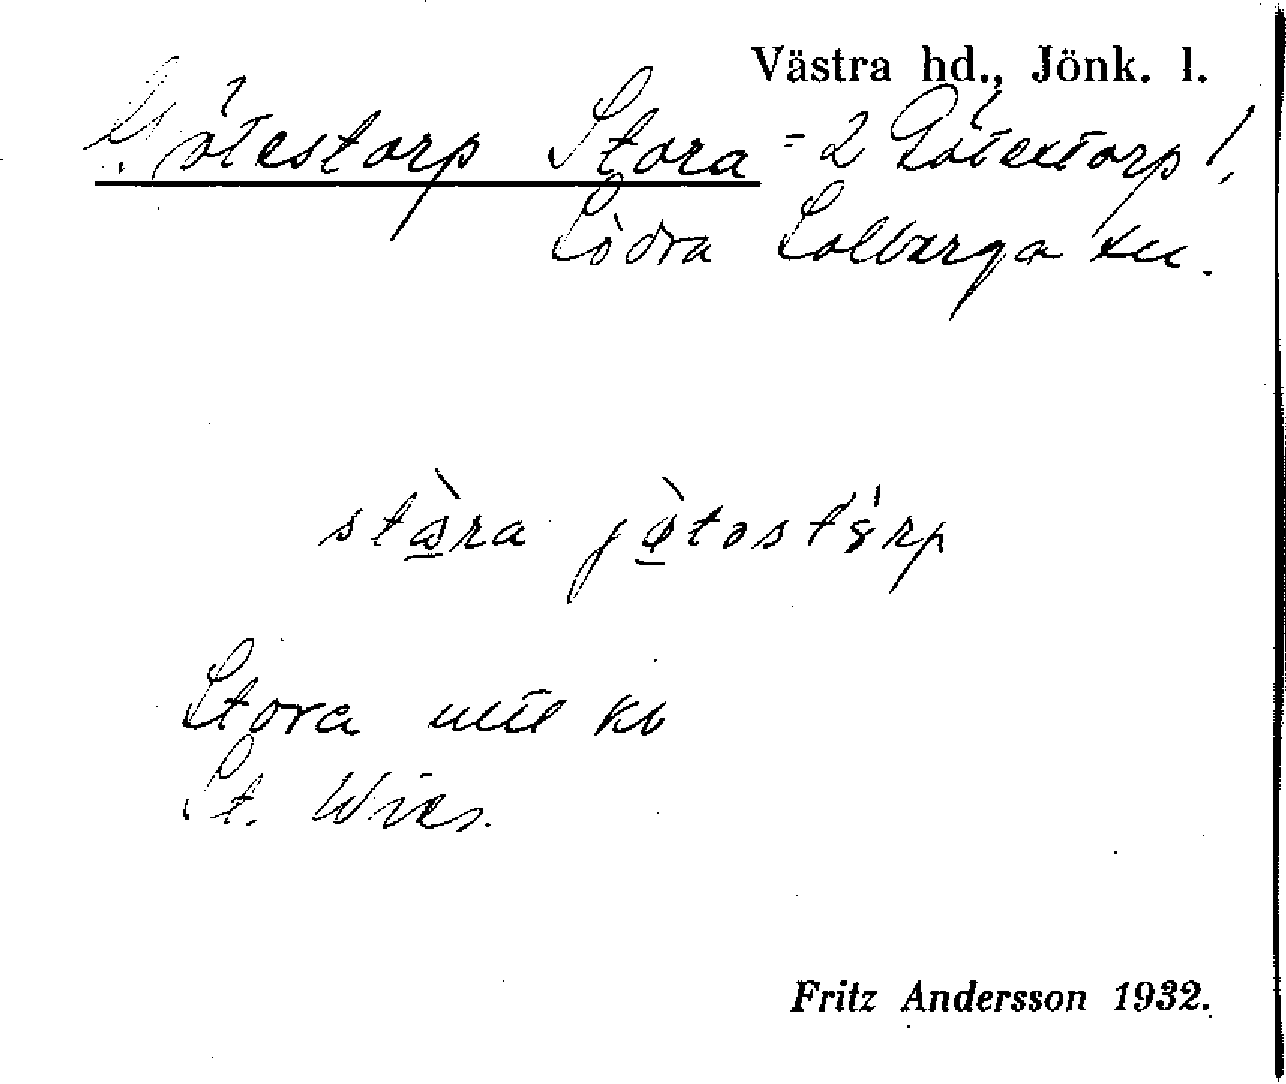 Västra hd., Jönk. l.
Götestorp Stora = 2 Götestorp!,
Södra Solberga sn.
stωra jøtostərp
Stora utt ko
St. Wies.
Fritz Andersson 1932.